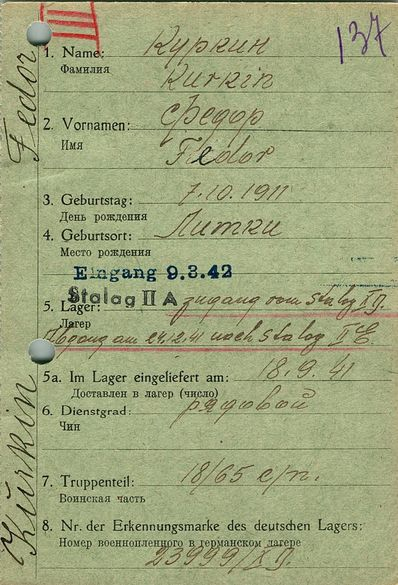 III
137
1. Name: Куркин
Фамилия Kurkin
2. Vornamen: Федор
Имя Fedor
3. Geburtstag: 7.10.1911
День рождения
4. Geburtsort: Литки
Место рождения
Eingang 9.3.42
Stalag II A
5. Lager: zugang vom Stalag XI D.
Лагер
Abgang am 24.12.41 nach Stalag II E.
5a. Im Lager eingeliefert am: 18.9.41
Доставлен в лагер (число)
6. Dienstgrad: рядовой
Чин
7. Truppenteil: 18/65 с/п.
Воинская часть
8. Nr. der Erkennungsmarke des deutschen Lagers:
Номер военнопленного в германском лагере
23999/XI D.
Kurkin Fedor